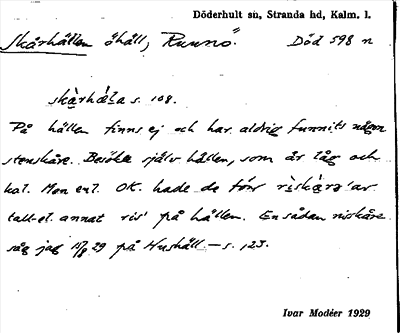 Döderhult sn, Stranda hd, Kalm. l.
Skårhällen öhäll, Runnö. Död 598 n
skàrhæ̀lˌa s. 108.
På hällen finns ej och har aldrig funnits någon
stenskåre. Besökte själv hällen, som är låg och
kal. Men enl. OK. hade de förr rìskàrar av
tall- el. annat ris på hällen. En sådan riskåre
såg jag 11/8 29 på Hushäll. — s. 123.
Ivar Modéer 1929